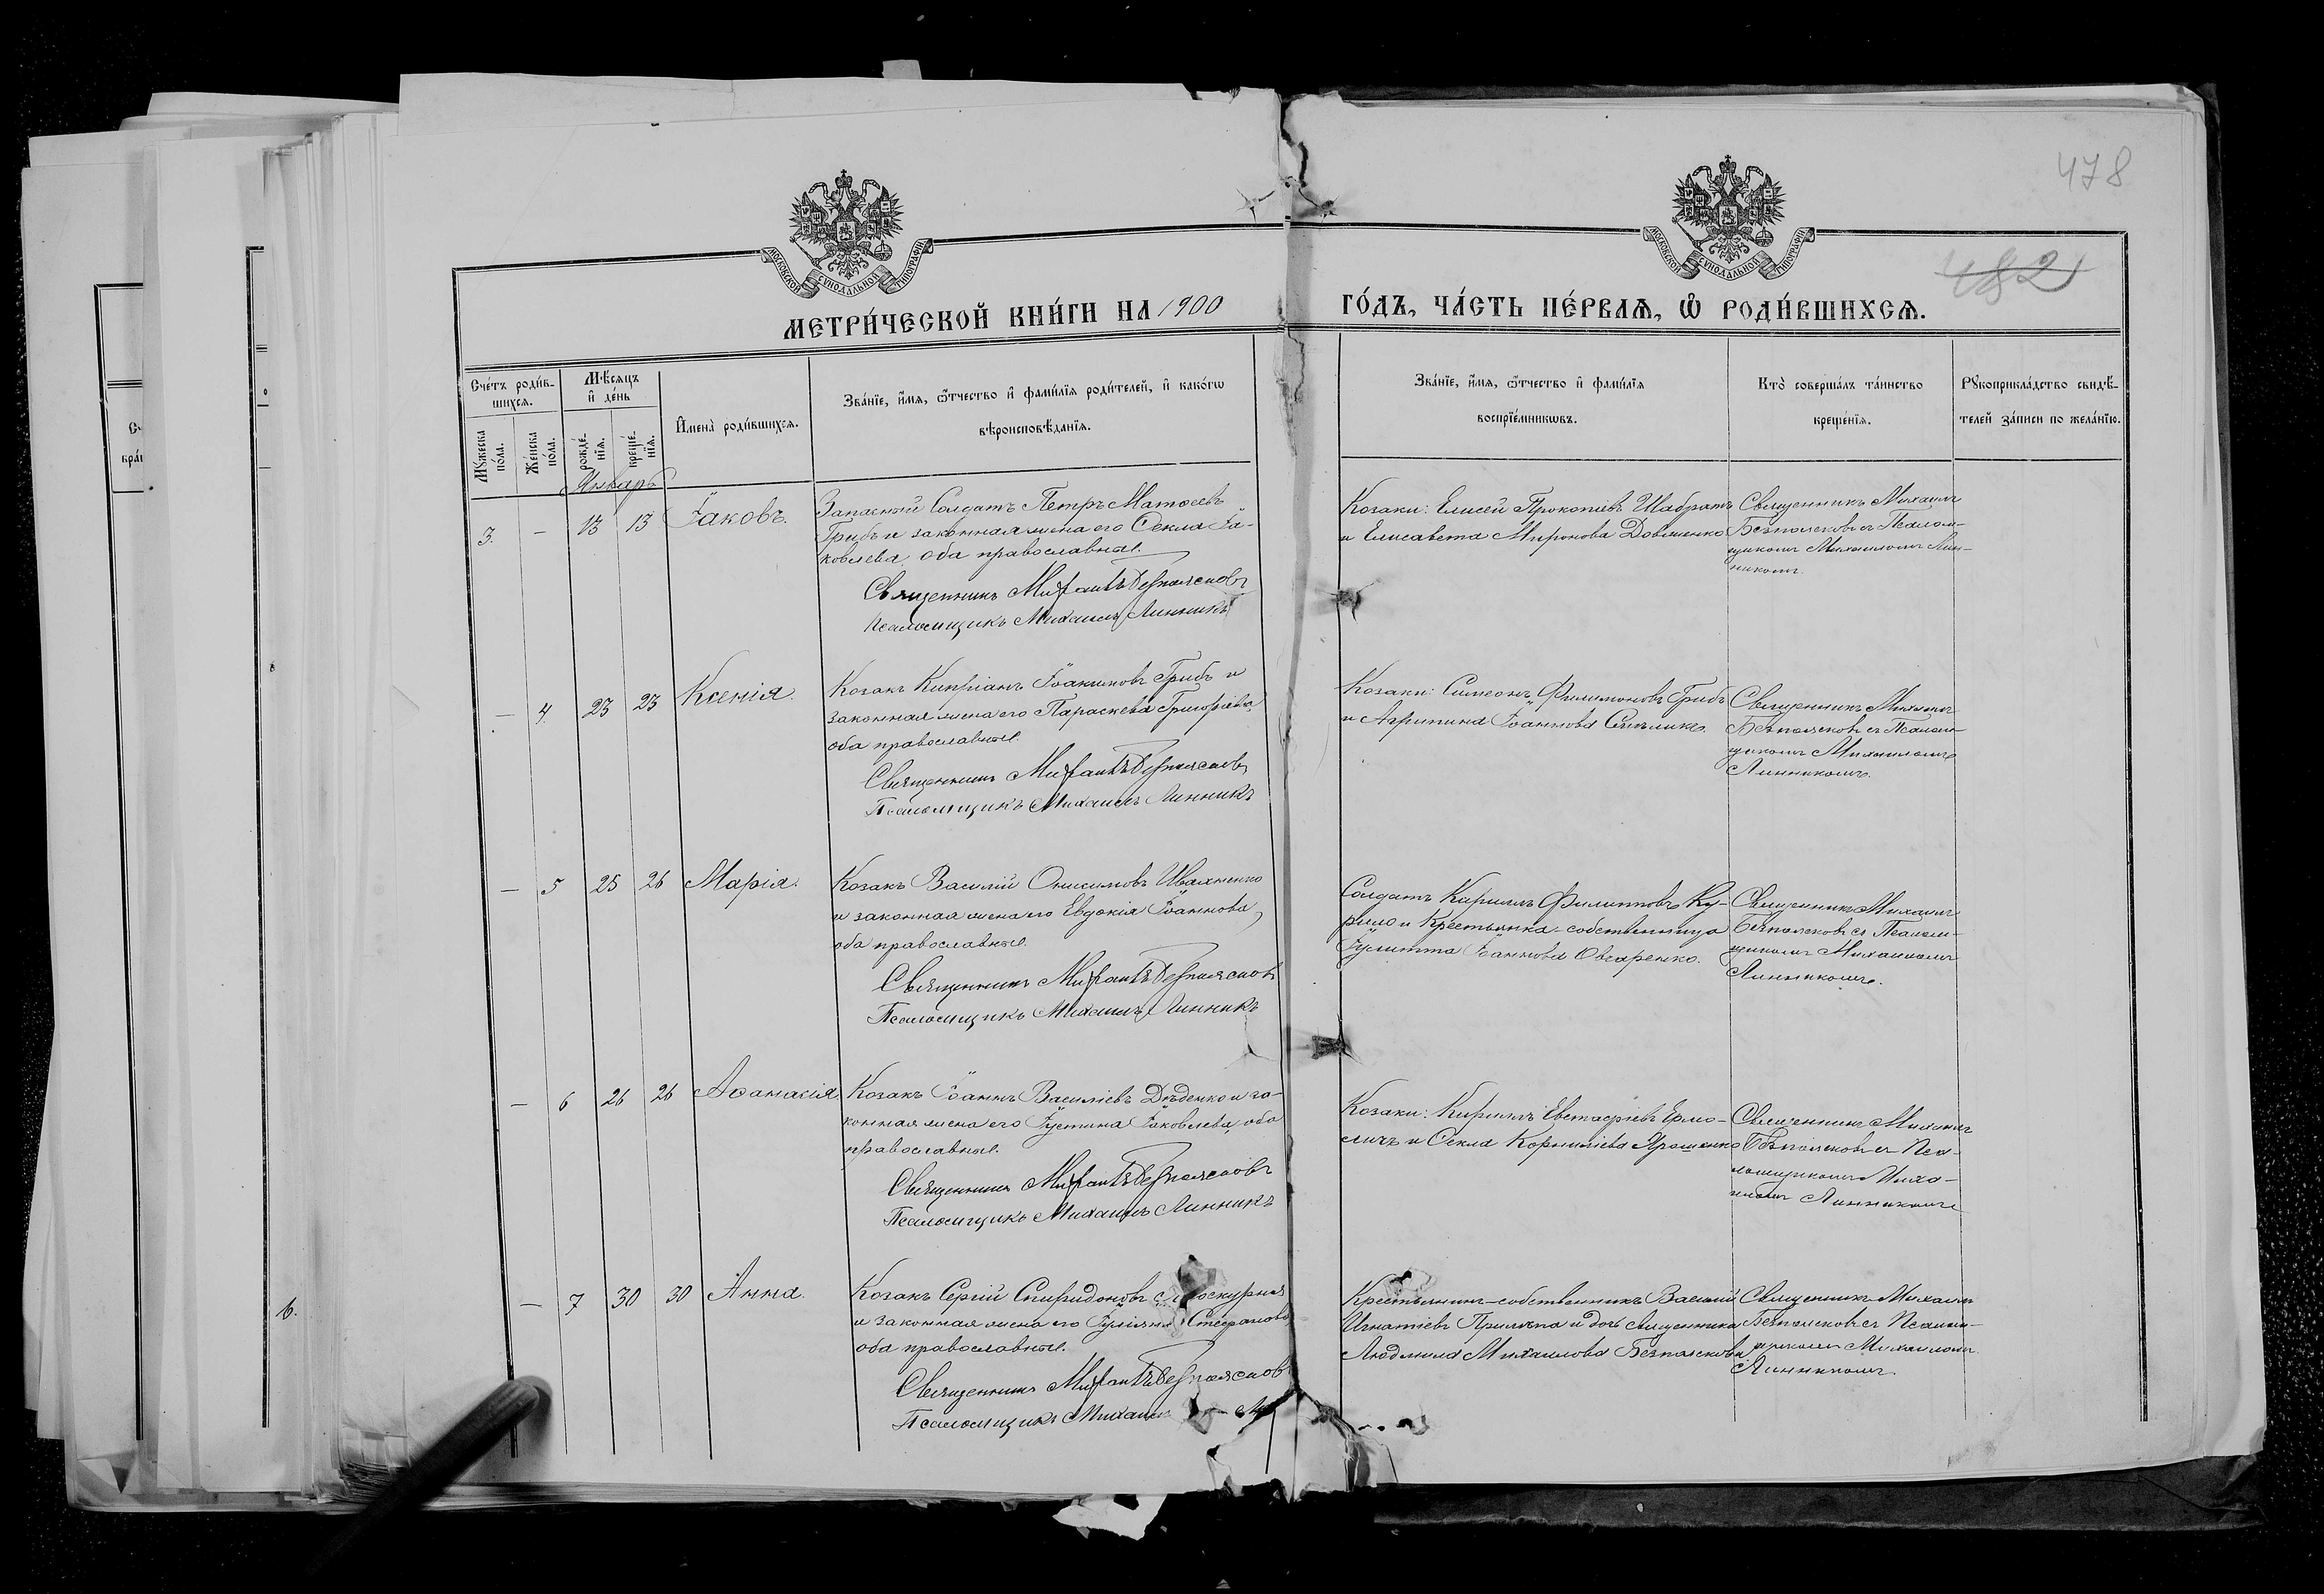 478
482
МОСКОВСКОЙ СѴНОДАЛЬНОЙ ТИПОГРАФІИ
МОСКОВСКОЙ СѴНОДАЛЬНОЙ ТИПОГРАФІИ
МЕТРИ́ЧЕСКОЙ КНИ́ГИ НА 1900 ГО́ДЪ, ЧА́СТЬ ПЕ́РВАѦ, Ѡ҆ РОДИ́ВШИХСѦ.
Счéтъ роди́в-
шихсѧ.
Мꙋ́жеска
по́ла.
Же́нска
по́ла.
Мѣ́сѧцъ
и҆ де́нь
рожде́-
нїѧ.
креще́-
нїѧ.
И҆мена̀ роди́вшихсѧ.
Зва́нїе, и҆́мѧ, ѻ҆́тчество и҆ фами́лїѧ роди́телей, и҆ како́гѡ
вѣроисповѣ́данїѧ.
Зва́нїе, и҆́мѧ, ѻ҆́тчество и҆ фами́лїѧ
воспрїе́мникѡвъ.
Кто̀ соверша́лъ та́инство
креще́нїѧ.
Рꙋкоприкла́дство свидѣ́-
телей за́писи по жела́нїю.
Январь
3. — 13 13 Іаковъ.
Запасный Солдатъ Петръ Матѳеевъ
Грибъ и законная жена его Ѳекла Іа-
ковлева, оба православные.
Священникъ Михаилъ Безпоясковъ
Псаломщикъ Михаилъ Линникъ
Козаки: Елисей Прокопіевъ Шабратъ
и Елисавета Миронова Довженко
Священникъ Михаилъ
Безпоясковъ съ Псалом-
щикомъ Михаиломъ Лин-
никомъ.
— 4 23 23 Ксенія.
Козакъ Кипріанъ Іоакимовъ Грибъ и
законная жена его Параскева Григоріева,
оба православные.
Священникъ Михаилъ Безпоясковъ
Псаломщикъ Михаилъ Линникъ
Козаки: Симеонъ Филимоновъ Грибъ
и Агрипина Іоаннова
Священникъ Михаилъ
Безпоясковъ съ Псалом-
щикомъ Михаиломъ
Линникомъ.
— 5 25 26 Марія.
Козакъ Василій Онисимовъ Ивахненко
и законная жена его Евдокія Іоаннова,
оба православные.
Священникъ Михаилъ Безпоясковъ
Псаломщикъ Михаилъ Линникъ
Солдатъ Кириллъ Филипповъ Ку-
рило и Крестьянка-собственница
Іулитта Іоаннова Овчаренко.
Священникъ Михаилъ
Безпоясковъ съ Псалом-
щикомъ Михаиломъ
Линникомъ.
— 6 26 26 Аѳанасія
Козакъ Іоаннъ Василіевъ Дѣденко и за-
конная жена его Іустина Іаковлева, оба
православные.
Священникъ Михаилъ Безпоясковъ
Псаломщикъ Михаилъ Линникъ
Козаки: Кириллъ Евстафіевъ Ермо-
личъ и Ѳекла Корниліева Ярошенко
Священникъ Михаилъ
Безпоясковъ съ Пса-
ломщикомъ Миха-
иломъ Линникомъ
— 7 30 30 Анна.
Козакъ Сергій Спиридоновъ
и законная жена его Іуліанія Стефанова,
оба православные.
Священникъ Михаилъ Безпоясковъ
Псаломщикъ Михаилъ
Крестьянинъ-собственникъ Василій
Игнатіевъ Прилѣпа и дочь священника
Людмила Михаилова Безпояскова
Священникъ Михаилъ
Безпоясковъ съ Псалом-
щикомъ Михаиломъ
Линникомъ.